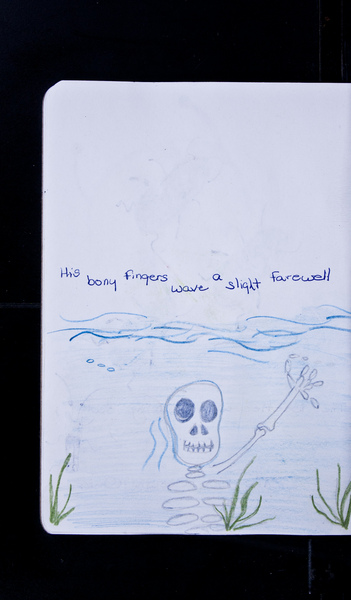 His bony fingers wave a slight farewell